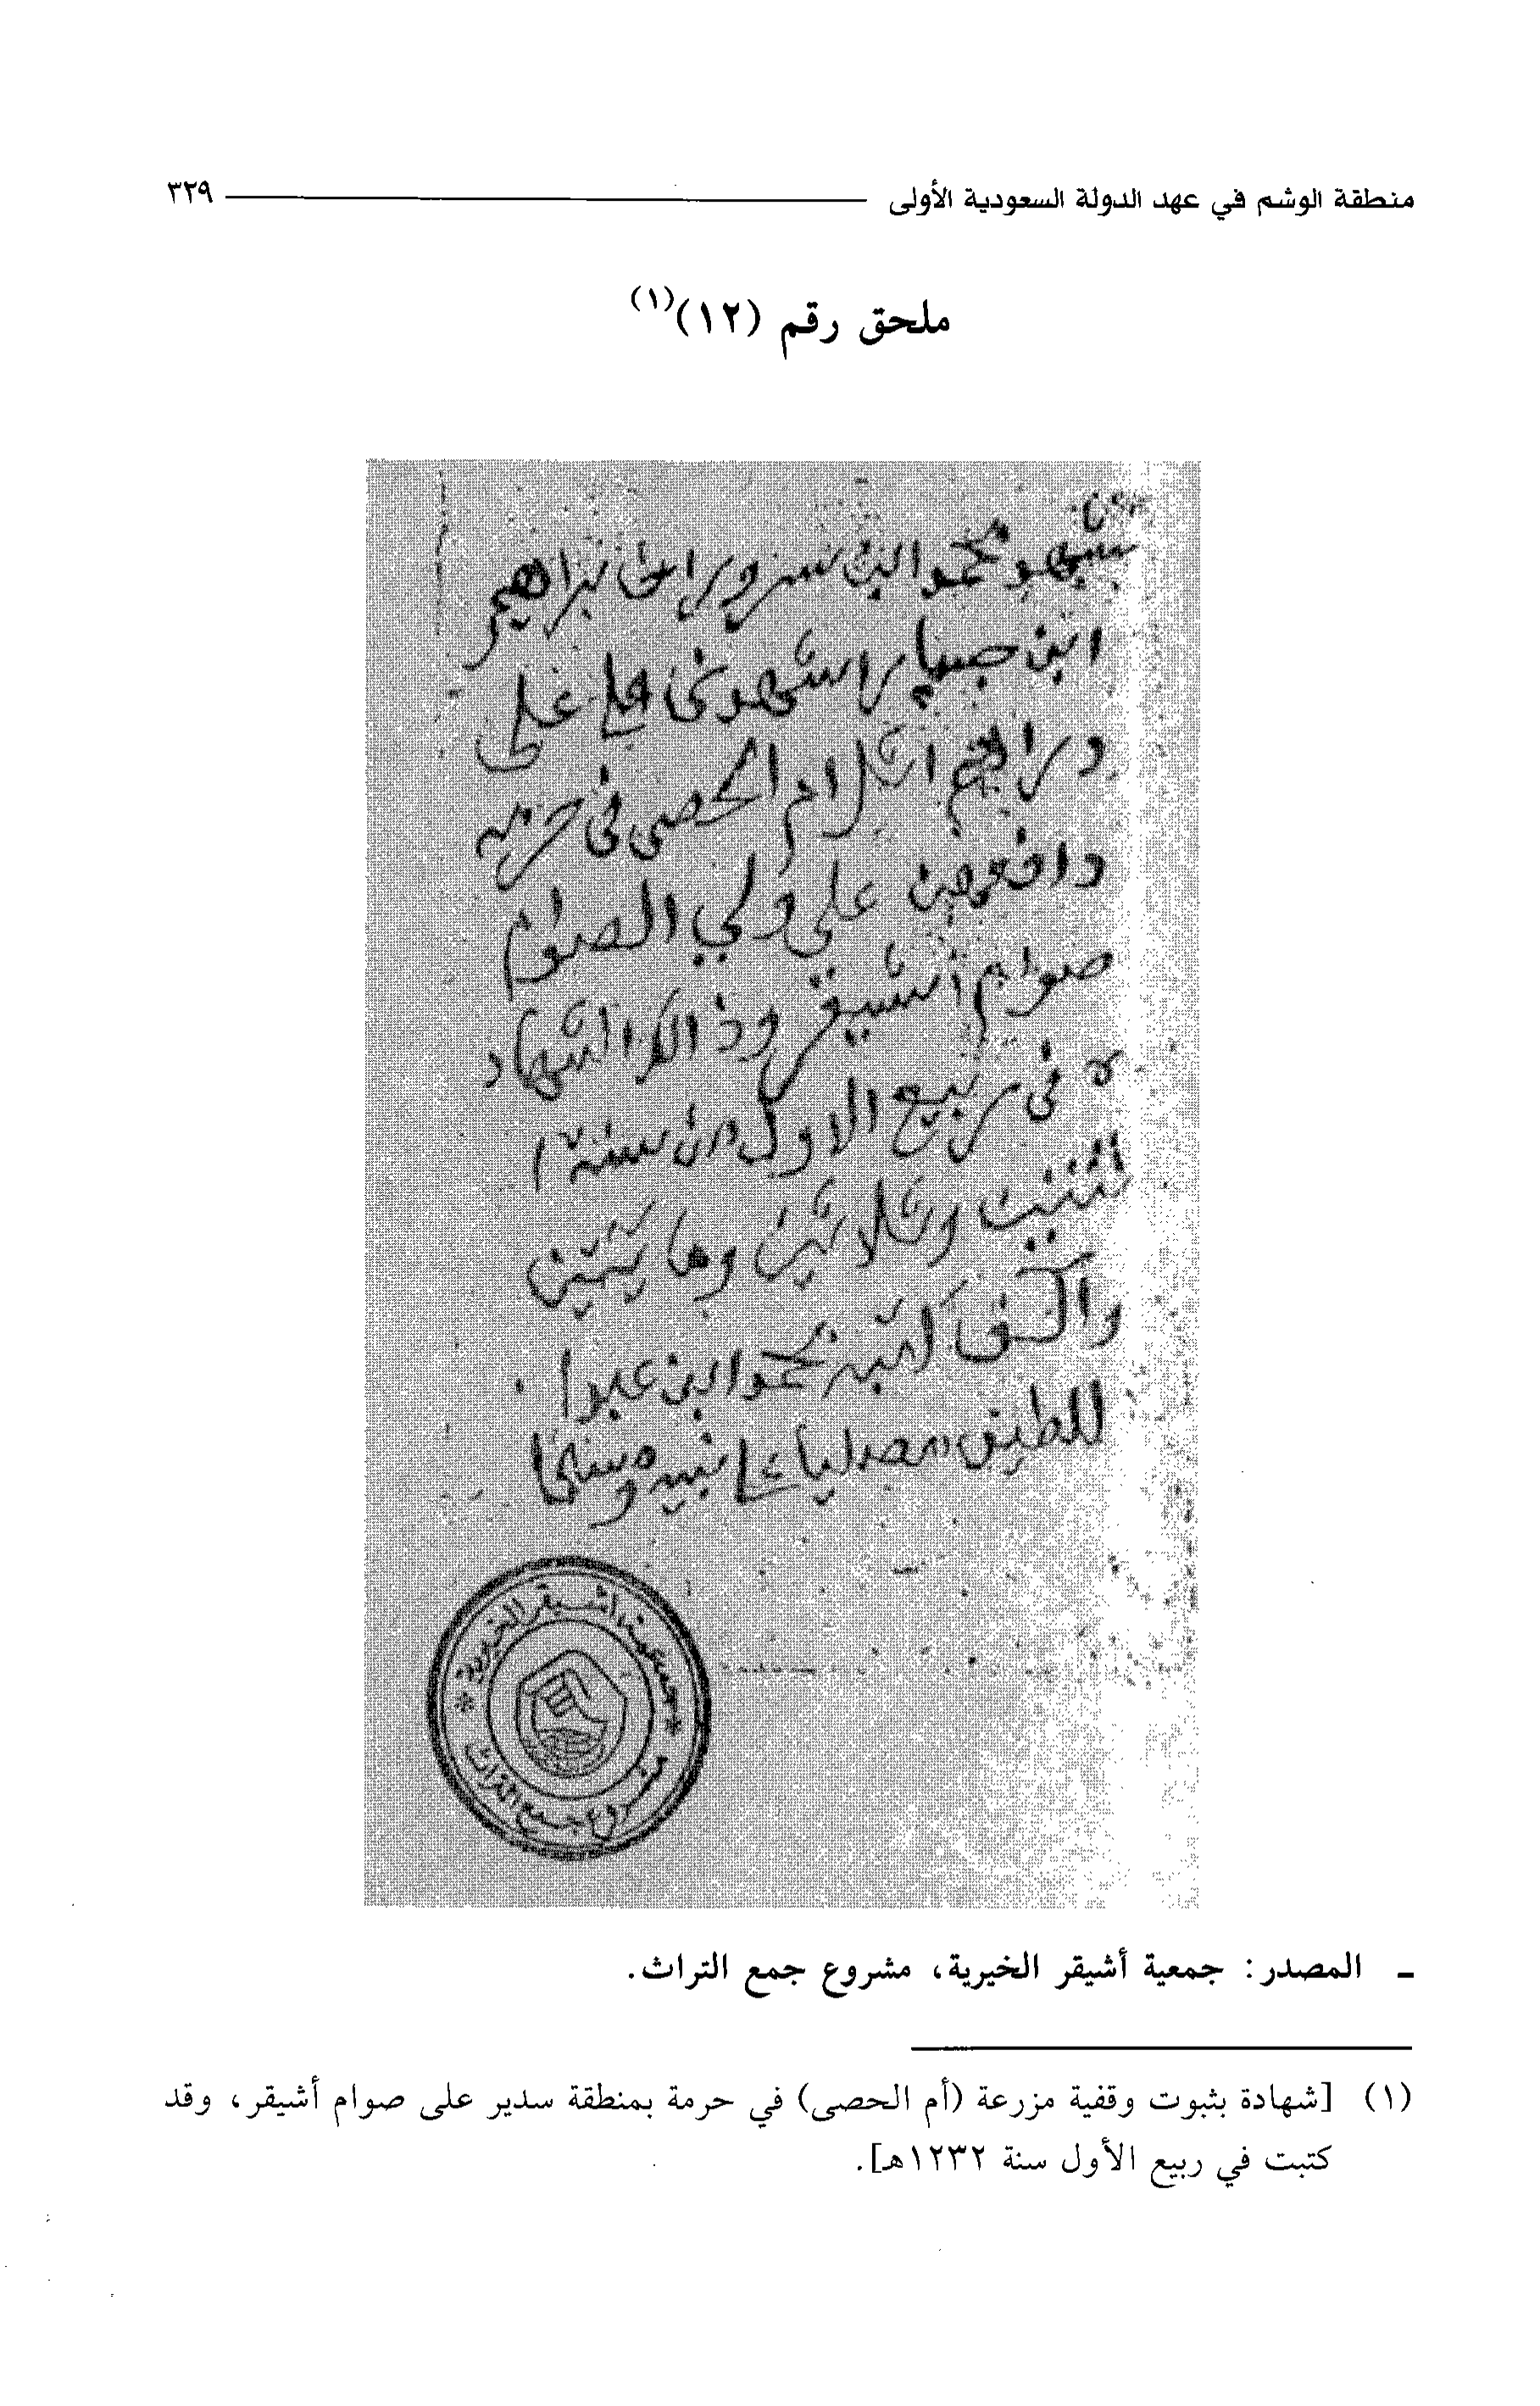 منطقة الوشم في عهد الدولة السعودية الأولى ٣٢٩
ملحق رقم (١٢)(١)
يشهد محمد ابن سرور ابراهيم
ابن اشهدني على
ام الحصى في حرمه
دافعهن على ولي الصوام
صوام اشيقر وذالك الشهاد
ه في ربيع الاول من سنة ا
ثنين وثلاثين ومايتين
والف كتبه محمد ابن عبد ا
للطيف مصليا على نبيه ومسلما
جمعية أشيقر الخيرية
مشروع جمع التراث
ـ المصدر: جمعية أشيقر الخيرية، مشروع جمع التراث.
(١) [شهادة بثبوت وقفية مزرعة (أم الحصى) في حرمة بمنطقة سدير على صوام أشيقر، وقد
كتبت في ربيع الأول سنة ١٢٣٢هـ].